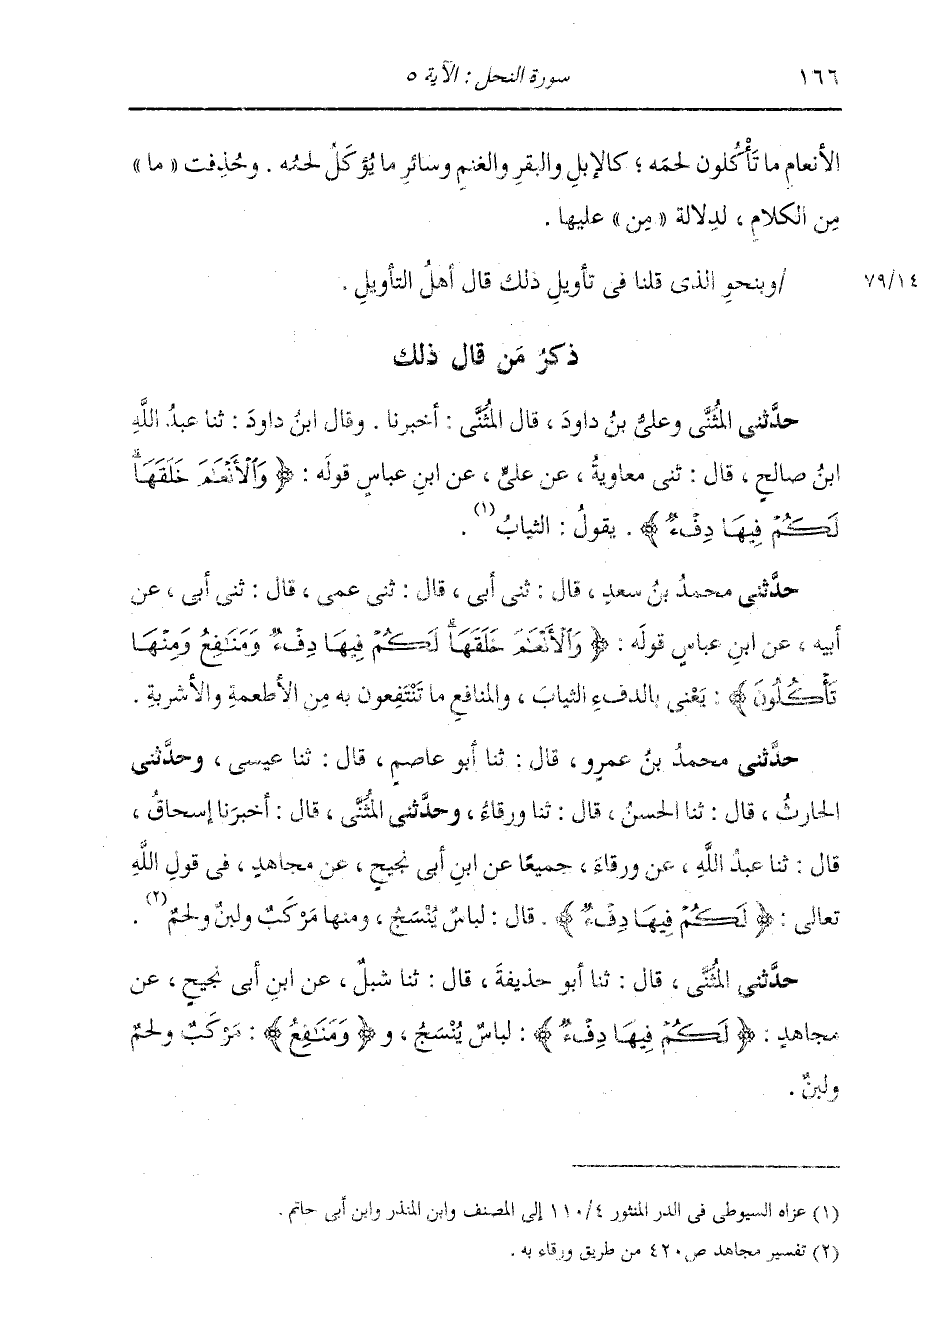 ١٦٦ سورة النحل : الآية ٥
الأنعام ما تَأْكُلون لحمَه ؛ كالإبلِ والبقرِ والغنمِ وسائرِ ما يُؤكَلُ لحمُه . وحُذِفت « ما »
مِن الكلامِ ، لدِلالة « مِن » عليها .
٧٩/١٤ /وبنحوِ الذى قلنا فى تأويلِ ذلك قال أهلُ التأويلِ .
ذكرُ مَن قال ذلك
حدَّثنى المُثَنَّى وعلىُّ بنُ داودَ ، قال المُثَنَّى : أخبرنا . وقال ابنُ داودَ : ثنا عبدُ اللَّهِ
ابنُ صالحٍ ، قال : ثنى معاويةُ ، عن علىٍّ ، عن ابنِ عباسٍ قولَه : ﴿ وَٱلْأَنْعَـٰمَ خَلَقَهَاۗ
لَكُمْ فِيهَا دِفْءٌ ﴾ . يقولُ : الثيابُ(١) .
حدَّثنى محمدُ بنُ سعدٍ ، قال : ثنى أبى ، قال : ثنى عمى ، قال : ثنى أبى ، عن
أبيه ، عن ابنِ عباسٍ قولَه : ﴿ وَٱلْأَنْعَـٰمَ خَلَقَهَاۗ لَكُمْ فِيهَا دِفْءٌ وَمَنَـٰفِعُ وَمِنْهَا
تَأْكُلُونَ ﴾ : يَعْنى بالدفءِ الثيابَ ، والمنافعِ ما تَنْتَفِعون به مِن الأطعمةِ والأشربةِ .
حدَّثنى محمدُ بنُ عمرٍو ، قال : ثنا أبو عاصمٍ ، قال : ثنا عيسى ، وحدَّثنى
الحارثُ ، قال : ثنا الحسنُ ، قال : ثنا ورقاءُ ، وحدَّثنى المُثَنَّى ، قال : أخبرَنا إسحاقُ ،
قال : ثنا عبدُ اللَّهِ ، عن ورقاءَ ، جميعًا عن ابنِ أبى نَجيحٍ ، عن مجاهدٍ ، فى قولِ اللَّهِ
تعالى : ﴿ لَكُمْ فِيهَا دِفْءٌ ﴾ . قال : لباسٌ يُنْسَجُ ، ومنها مَرْكَبٌ ولبنٌ ولحمٌ(٢) .
حدَّثنى المُثَنَّى ، قال : ثنا أبو حذيفةَ ، قال : ثنا شبلٌ ، عن ابنِ أبى نَجيحٍ ، عن
مجاهدٍ : ﴿ لَكُمْ فِيهَا دِفْءٌ ﴾ : لباسٌ يُنْسَجُ ، و ﴿ وَمَنَـٰفِعُ ﴾ : مَرْكَبٌ ولحمٌ
ولبنٌ .
(١) عزاه السيوطى فى الدر المنثور ١١٠/٤ إلى المصنف وابن المنذر وابن أبى حاتم .
(٢) تفسير مجاهد ص٤٢٠ من طريق ورقاء به .